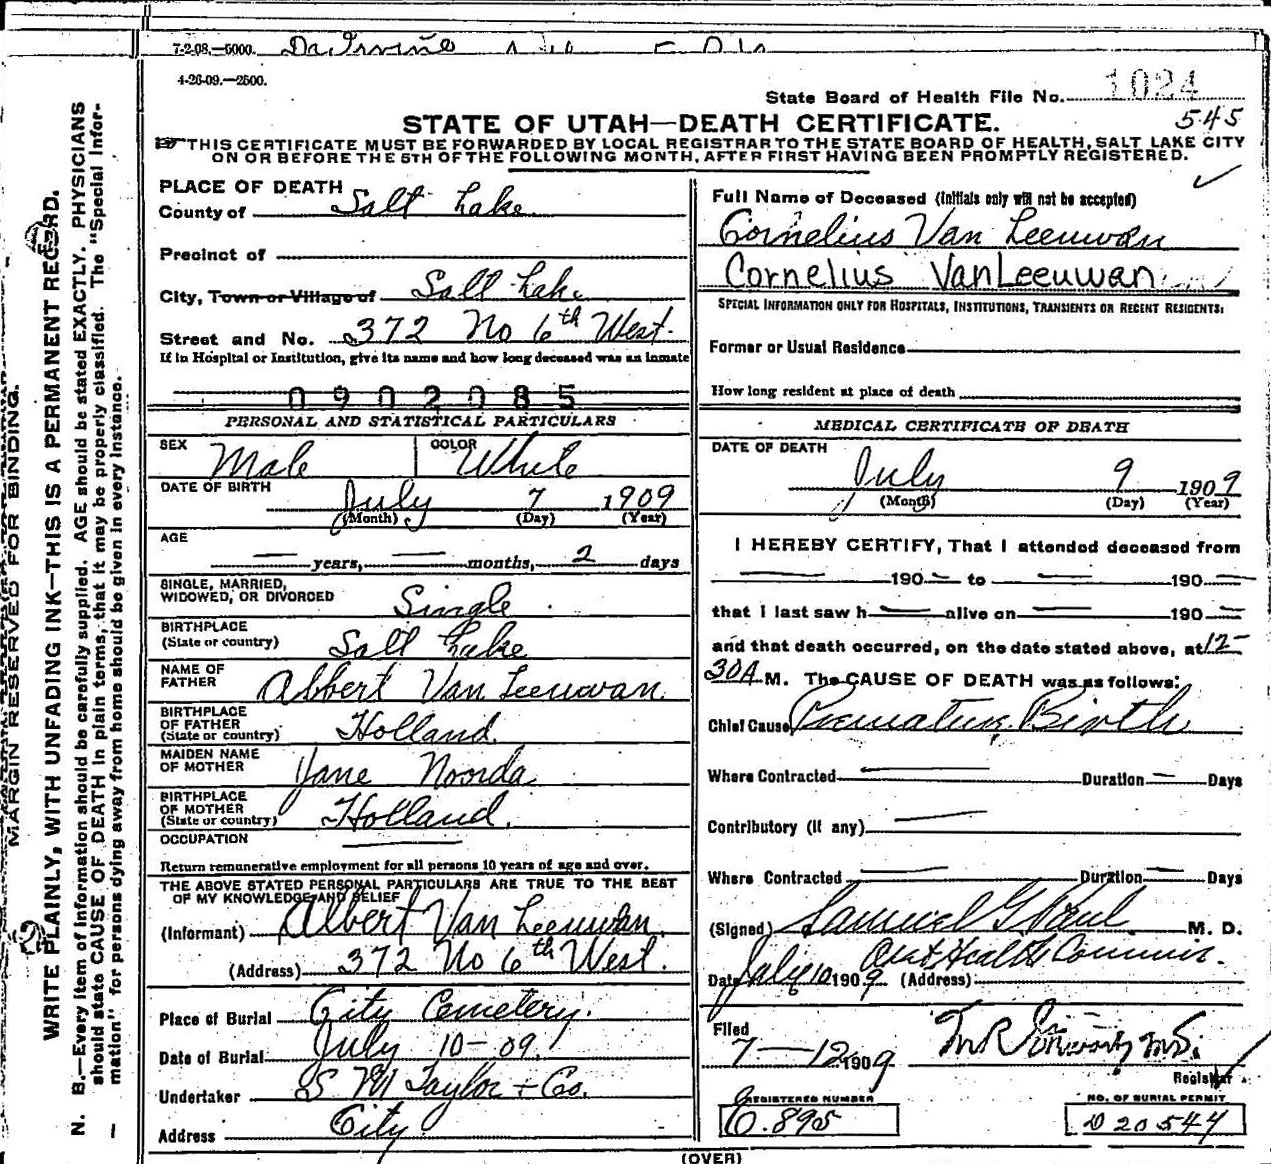 7-2-08.—5000. Dr. Irvine
4-26-09.—2500.
State Board of Health File No. 1024
545
STATE OF UTAH—DEATH CERTIFICATE.
THIS CERTIFICATE MUST BE FORWARDED BY LOCAL REGISTRAR TO THE STATE BOARD OF HEALTH, SALT LAKE CITY
ON OR BEFORE THE 5TH OF THE FOLLOWING MONTH, AFTER FIRST HAVING BEEN PROMPTLY REGISTERED.
PLACE OF DEATH
County of Salt Lake
Precinct of
City, Town or Village of Salt Lake
Street and No. 372 No 6th West.
If in Hospital or Institution, give its name and how long deceased was an inmate
0902085
PERSONAL AND STATISTICAL PARTICULARS
SEX Male COLOR White
DATE OF BIRTH July 7 1909
(Month) (Day) (Year)
AGE
— years, — months, 2 days
SINGLE, MARRIED,
WIDOWED, OR DIVORCED Single
BIRTHPLACE
(State or country) Salt Lake
NAME OF
FATHER Albert Van Leeuwan
BIRTHPLACE
OF FATHER
(State or country) Holland
MAIDEN NAME
OF MOTHER Jane Noorda
BIRTHPLACE
OF MOTHER
(State or country) Holland.
OCCUPATION —
Return remunerative employment for all persons 10 years of age and over.
THE ABOVE STATED PERSONAL PARTICULARS ARE TRUE TO THE BEST
OF MY KNOWLEDGE AND BELIEF
(Informant) Albert Van Leeuwan.
(Address) 372 No 6th West.
Place of Burial City Cemetery.
Date of Burial July 10-09.
Undertaker S M Taylor + Co.
Address City
Full Name of Deceased (Initials only will not be accepted)
Cornelius Van Leeuwan
Cornelius VanLeeuwan
SPECIAL INFORMATION ONLY FOR HOSPITALS, INSTITUTIONS, TRANSIENTS OR RECENT RESIDENTS:
Former or Usual Residence
How long resident at place of death
MEDICAL CERTIFICATE OF DEATH
DATE OF DEATH
July 9 1909
(Month) (Day) (Year)
I HEREBY CERTIFY, That I attended deceased from
— 190 — to — 190 —
that I last saw h — alive on — 190 —
and that death occurred, on the date stated above, at 12-
30A M. The CAUSE OF DEATH was as follows:
Chief Cause Premature Birth
Where Contracted — Duration — Days
Contributory (if any) —
Where Contracted — Duration — Days
(Signed) Samuel G Paul M. D.
Date July 10 1909 (Address) Health Commis.
Filed
7—12 1909
Registrar
REGISTERED NUMBER
O.895
NO. OF BURIAL PERMIT
D 20544
(OVER)
MARGIN RESERVED FOR BINDING.
WRITE PLAINLY, WITH UNFADING INK—THIS IS A PERMANENT RECORD.
N. B.—Every item of information should be carefully supplied. AGE should be stated EXACTLY. PHYSICIANS
should state CAUSE OF DEATH in plain terms, that it may be properly classified. The "Special Infor-
mation" for persons dying away from home should be given in every instance.